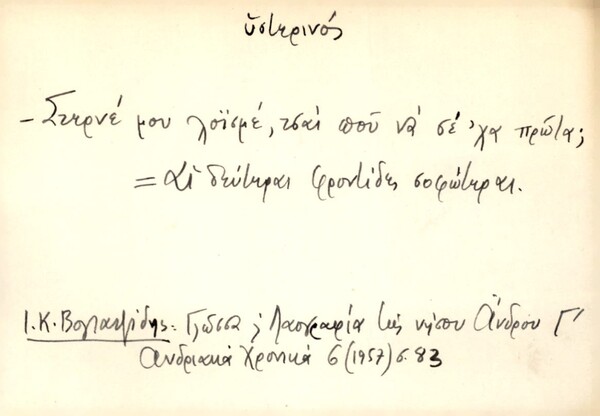 ὑστερινός
- Στερνέ μου λοϊσμέ, τσαί ποῦ νά σέ 'χα πρῶτα;
= αἱ δεύτεραι φροντίδες σοφώτεραι.
Ι. Κ. Βογιατζίδης: Γλῶσσα & Λαογραφία τῆς νήσου Ἄνδρου Γ'
Ἀνδριακά Χρονικά 6 (1957) σ. 83